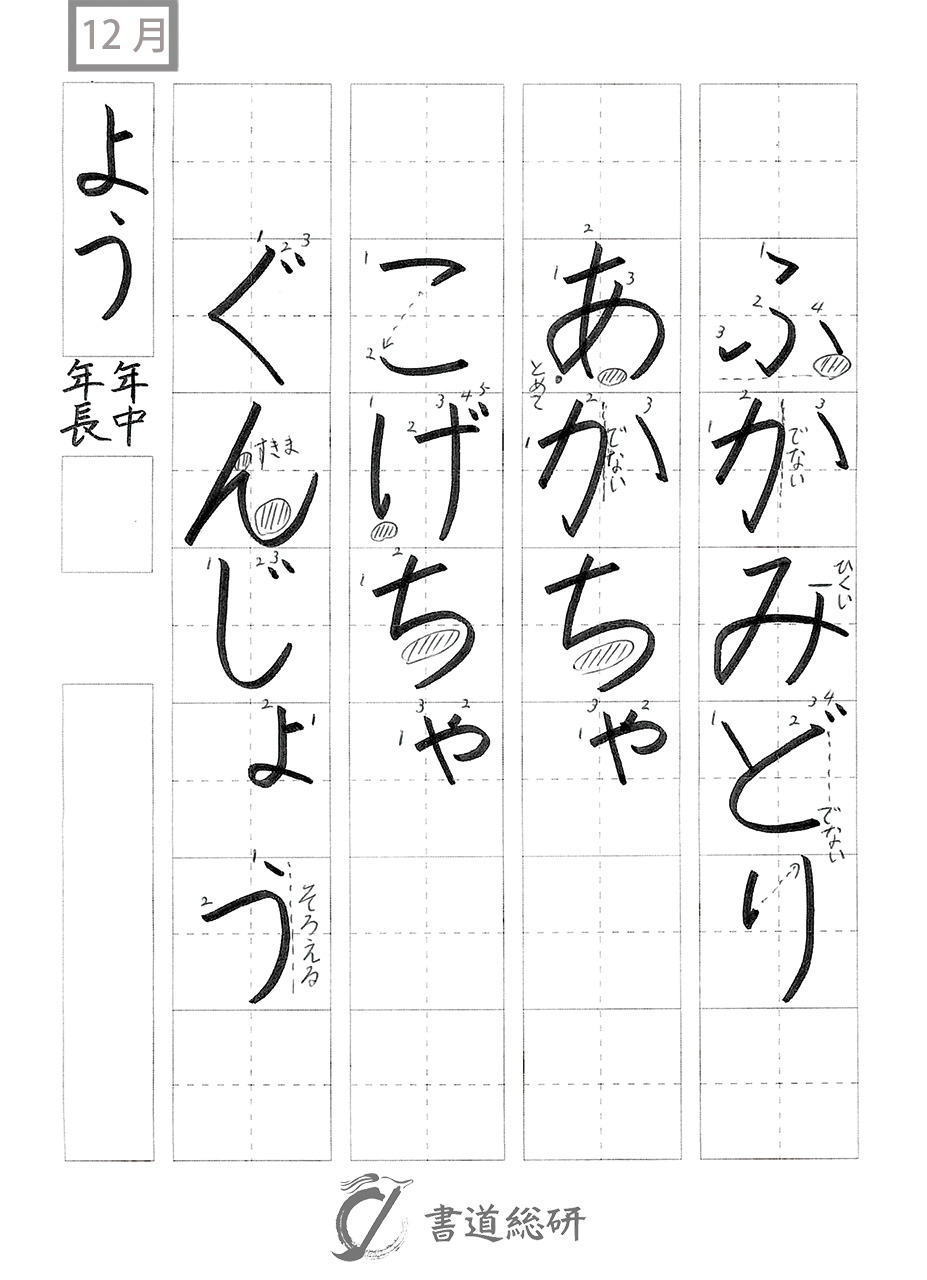 12月
ふかみどり
あかちゃ
こげちゃ
ぐんじょう
よう
年中
年長
でない
ひくい
でない
とめて
でない
すきま
そろえる
書道総研